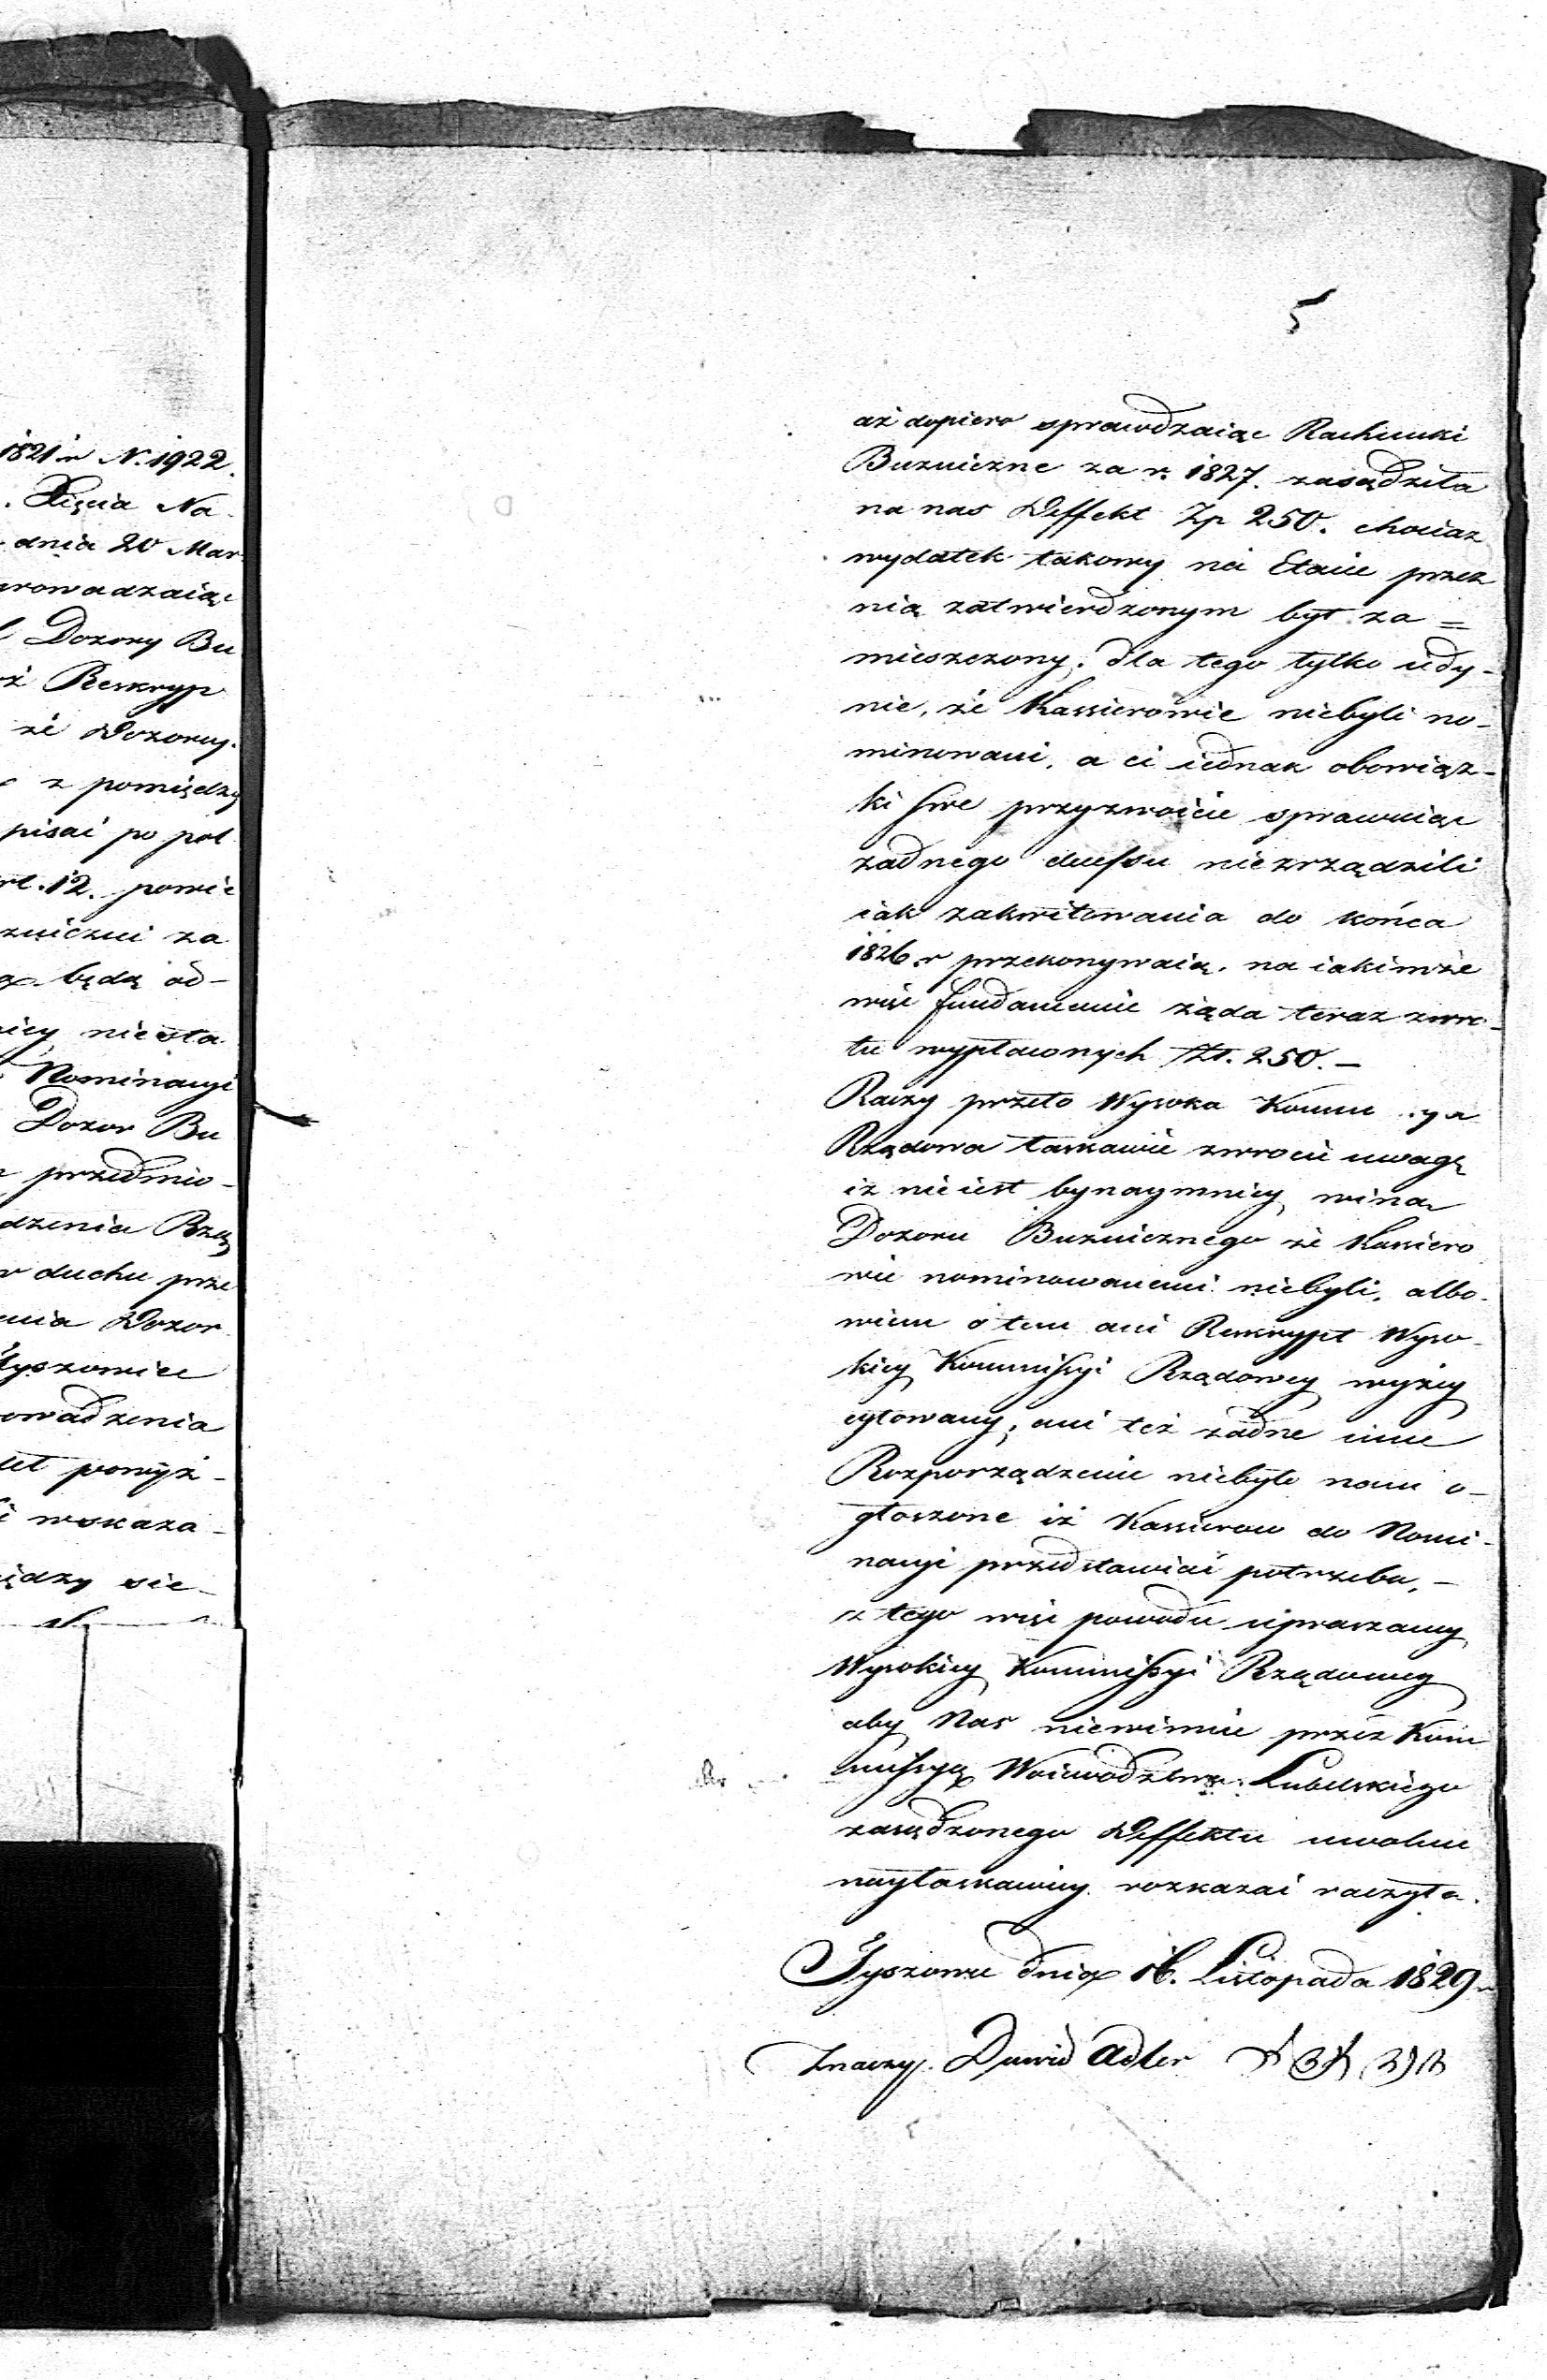 1821 r N. 1922.
. Xięcia Na-
dnia 20 Mar
prowadzaiąc
Dozory Bu
ż Reskryp
że Dozorcy.
z pomiędzy
pisać po pol
Art. 12. powie
zniczni za
będą od-
niesta
Nominacyi
Dozor Bu
przedmio-
dzenia Rzą
w duchu prze
enia Dozor
Tyszowiec
owadzenia
powyż-
wskaza-
iędzy sie-
5
aż dopiero sprawdzaiąc Rachunki
Buzniczne za r. 1827. zasądziła
na nas Deffekt Zp 250. chociaz
wydatek takowy na Etacie przez
nią zatwierdzonym był za=
mieszczony; dla tego tylko iedy-
nie, że Kassierowie niebyli no-
minowani, a ci iednak obowiąz-
ki swe przyzwoicie sprawuiąc
żadnego niezrządzili
iak zakwitowania do końca
1826 r przekonywaią. na iakimże
więc fundamencie żąda teraz zwro-
tu wypłaconych Zł. 250.-
Raczy przeto Wysoka Kommi ya
Rządowa łaskawie zwrócić uwagę
iż nieiest bynaymniey winą
Dozoru Buzniczneg​o że Kassiero
wie nominowanemi niebyli, albo-
wiem o tem ani Reskrypt Wyso-
kiey Kommissyi Rządowey wyżey
cytowany, ani też żadne inne
Rozporządzenie niebyło nam o-
głoszone iż Kassierow do Nomi-
nacyi przedstawiać potrzeba,-
z tego więc powodu upraszamy
Wysokiey Kommissyi Rządowey
aby Nas niewinnie przez Kom
missyą Woiewodztwa Lubelskiego
zasądzonego Deffektu uwolnić
nayłaskawiey rozkazać raczyła.
Tyszowce dnia 16. Listopada 1829 r
Znaczy. Dawid Adler